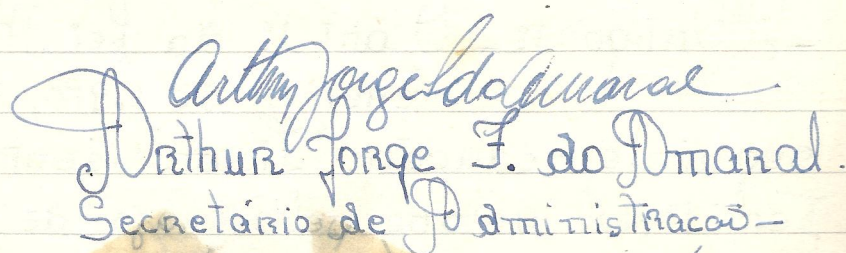 Arthur Jorge F do Amaral
Arthur Jorge F. do Amaral.
Secretário de Administracaõ-